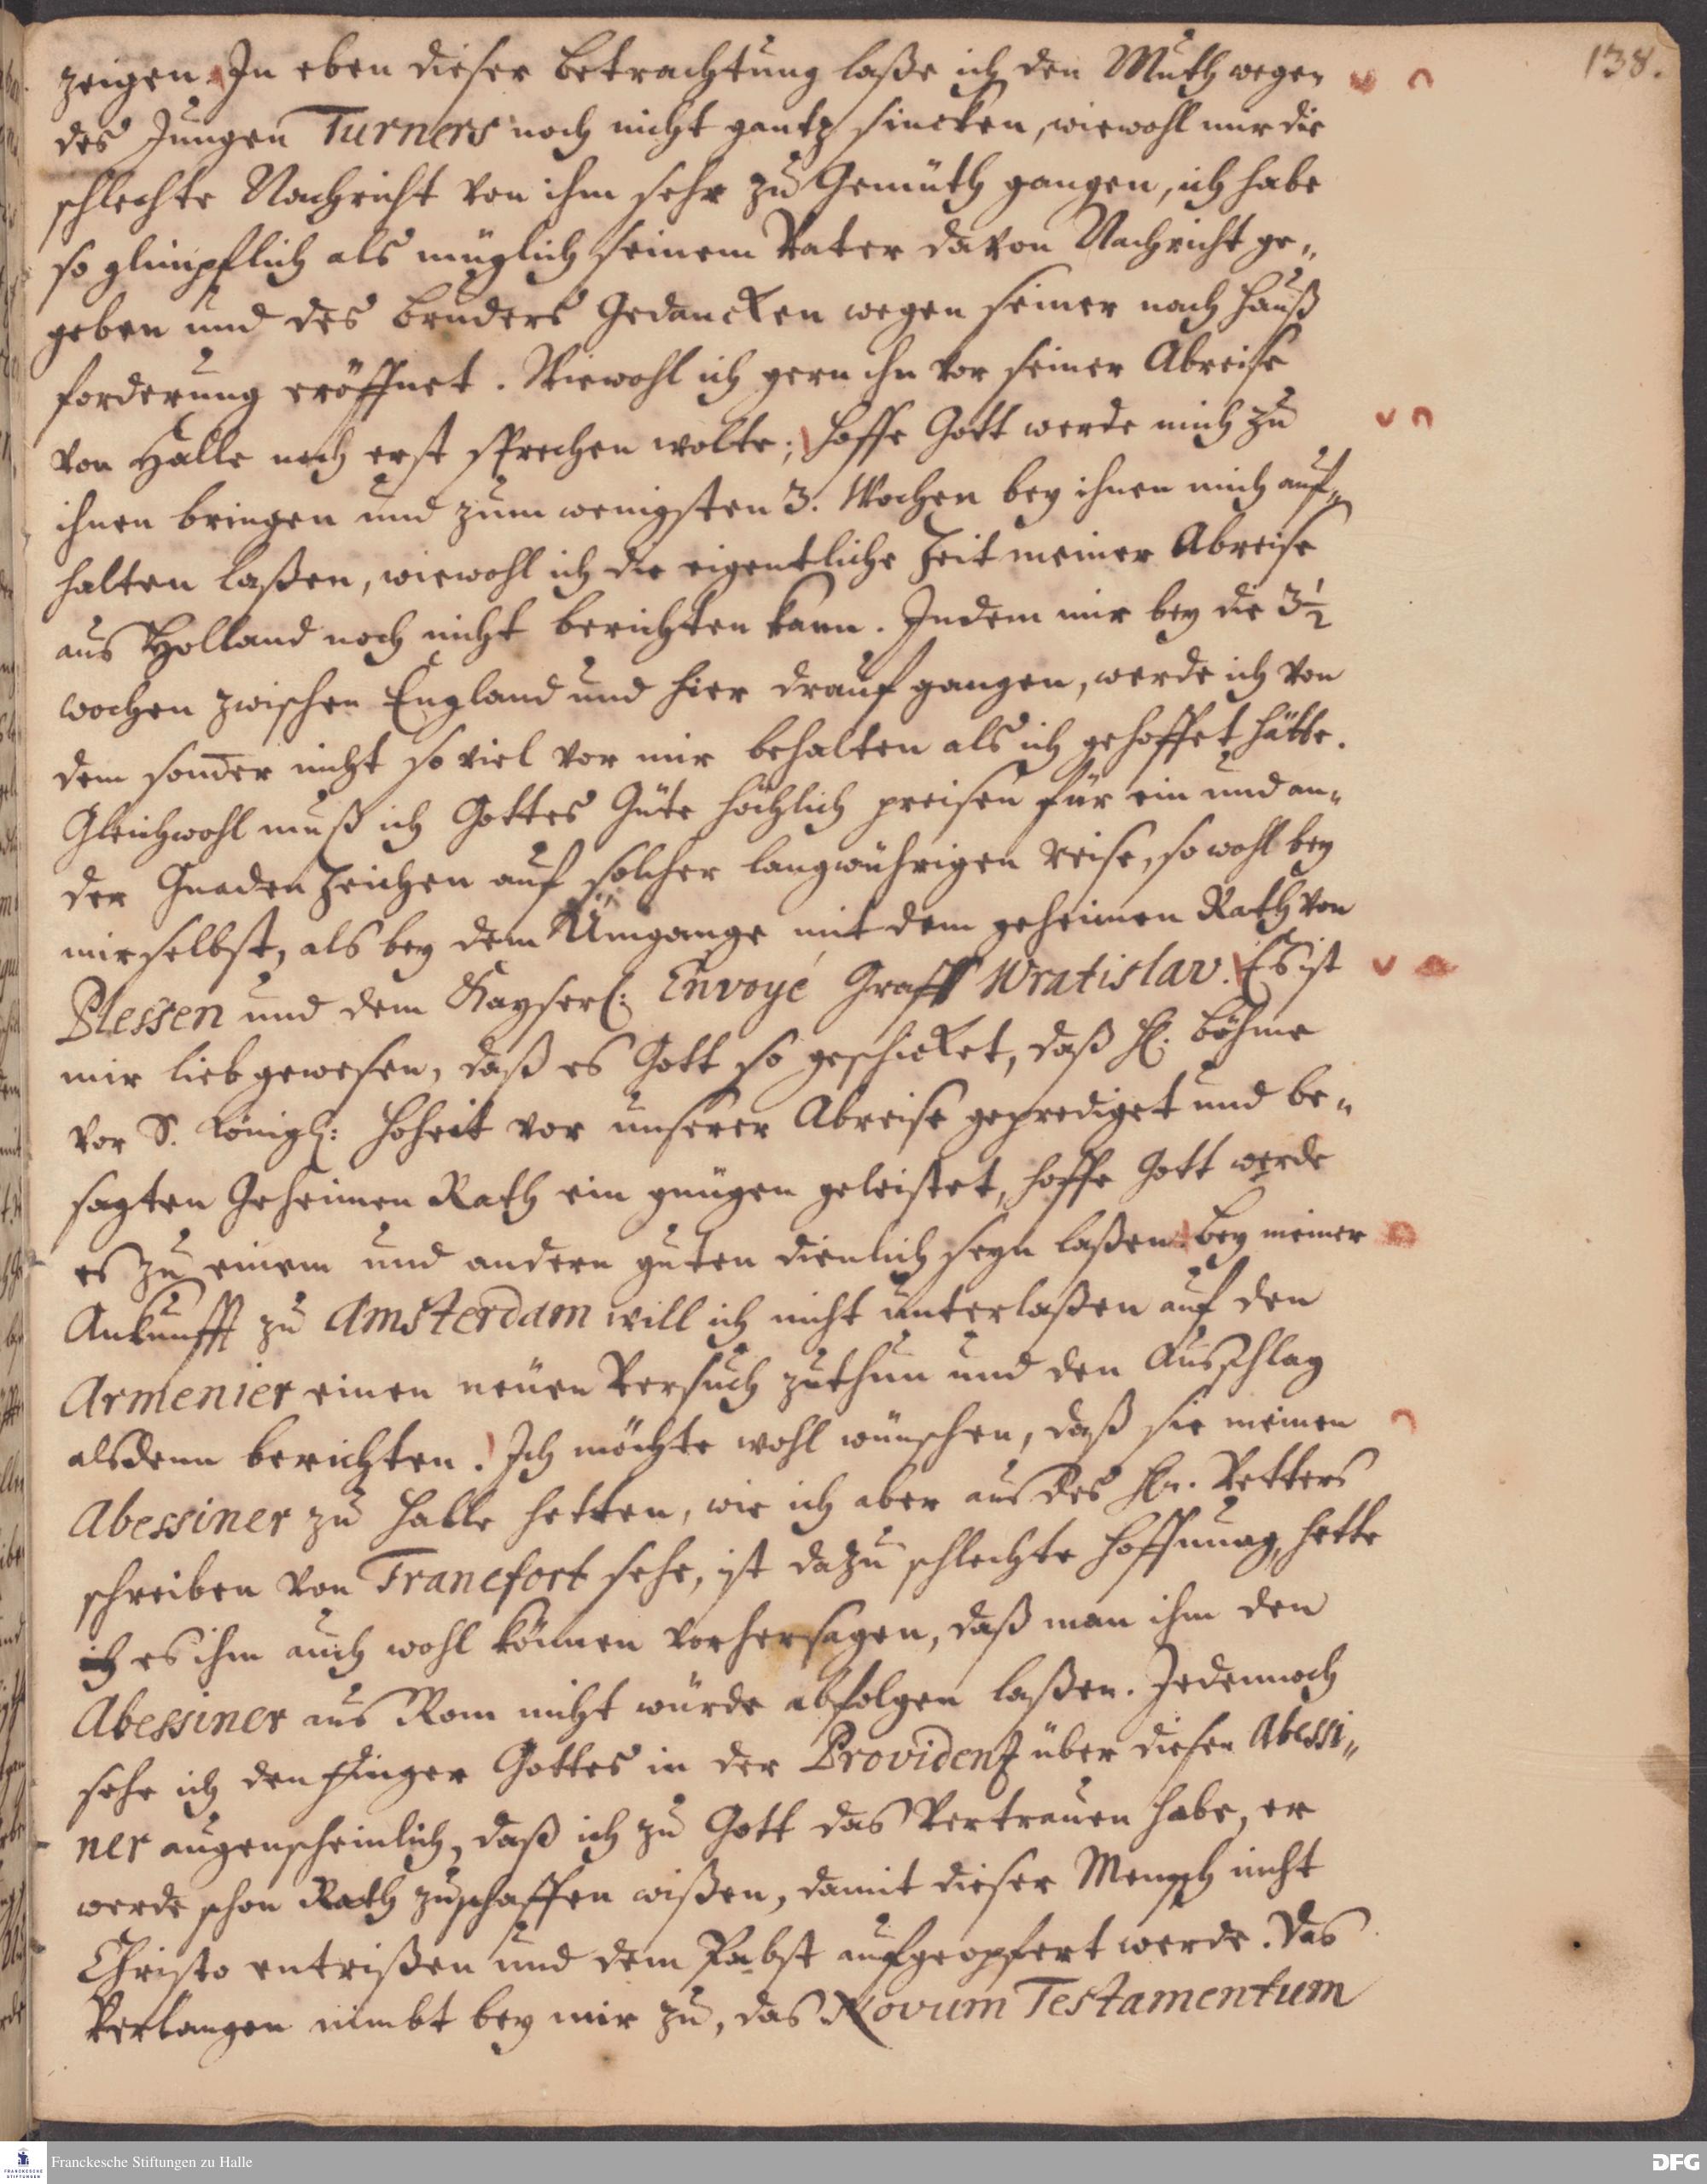 138.
zeigen. In eben dieser Betrachtung laße ich den Muth wegen
des Jungen Turners noch nicht gantz sincken, wiewohl mir die
schlechte Nachricht von ihm sehr zu Gemüth gangen, ich habe
so glimpflich als müglich seinem Vater davon Nachricht ge„
geben und des Bruders Gedancken wegen seiner nach Hauß
forderung eröffnet. Wiewohl ich gern ihn vor seiner Abreise
von Halle noch erst sprechen wolte; hoffe Gott werde mich zu
ihnen bringen und zum wenigsten 3. Wochen bey ihnen mich auf„
halten laßen, wiewohl ich die eigentliche Zeit meiner Abreise
aus Holland noch nicht berichten kann. Indem mir bey die 3½
wochen zwischen England und hier drauf gangen, werde ich von
dem sonder nicht so viel vor mir behalten als ich gehoffet hätte.
Gleichwohl muß ich Gottes Güte höchlich preisen für ein und an„
der Gnaden Zeichen auf solcher langwührigen reise, so wohl bey
mir selbst, als bey dem Umgange mit dem geheimen Rath von
Plessen und dem Kayserl: Envoyé Graff Wratislav. Es ist
mir lieb gewesen, daß es Gott so geschicket, daß H. Böhme
vor S. Königl: Hoheit vor unserer Abreise geprediget und be„
sagten Geheimen Rath ein gnügen geleistet, hoffe Gott werde
es zu einem und andern guten dienlich seyn laßen. Bey meiner
Ankunfft zu Amsterdam will ich nicht unterlaßen auf den
Armenier einen neuen Versuch zuthun und den Ausschlag
alsdenn berichten. Ich möchte wohl wünschen, daß sie meinen
Abessiner zu Halle hetten, wie ich aber aus des Hn. Vetters
schreiben von Francfort sehe, ist dazu schlechte Hoffnung, hette
ich es ihm auch wohl können vorhersagen, daß man ihm den
Abessiner aus Rom nicht würde abfolgen laßen. Jedennoch
sehe ich den Finger Gottes in der Providenz über diesen Abessi„
ner augenscheinlich, daß ich zu Gott das Vertrauen habe, er
werde schon Rath zuschaffen wißen, damit dieser Mensch nicht
Christo entrißen und dem Pabst aufgeopfert werde. Das
Verlangen nimbt bey mir zu, das Novum Testamentum
Franckesche Stiftungen zu Halle
DFG